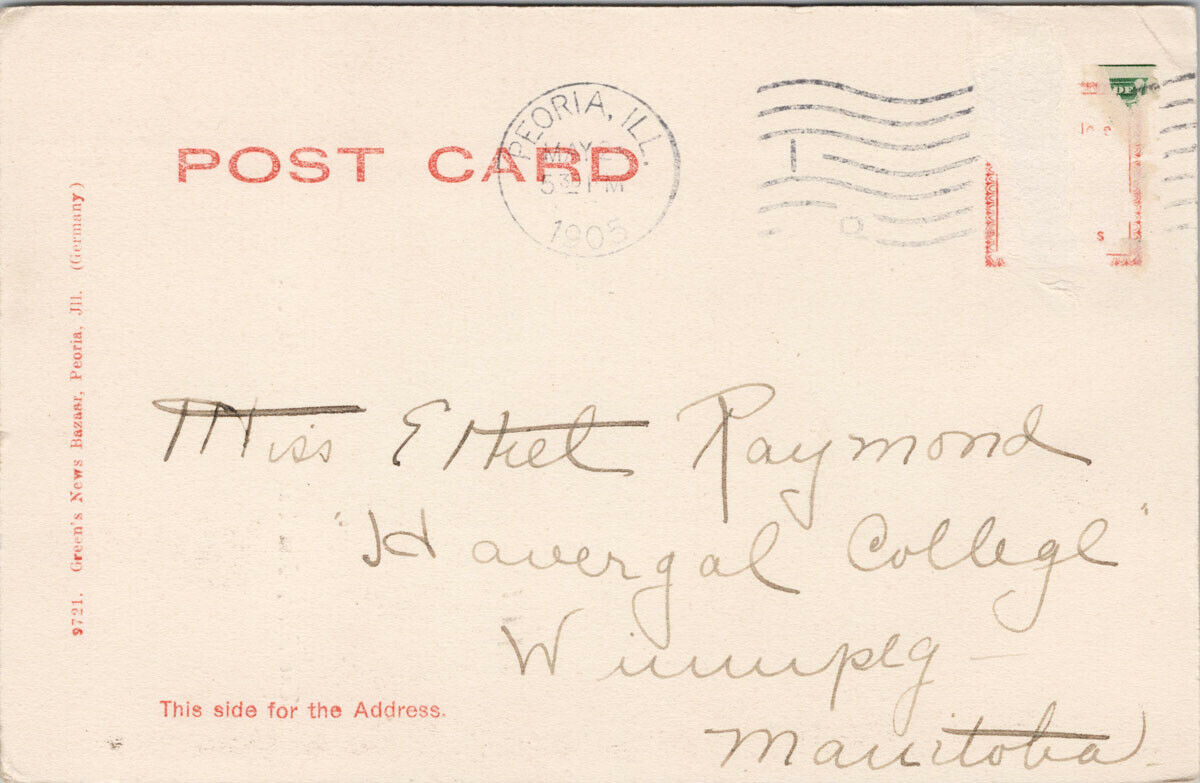 POST CARD
PEORIA, ILL.
MAY
530 PM
1905
Miss Ethel Raymond
"Havergal College"
Winnipeg
Manitoba
This side for the Address.
9721. Green's News Bazaar, Peoria, Jll. (Germany)